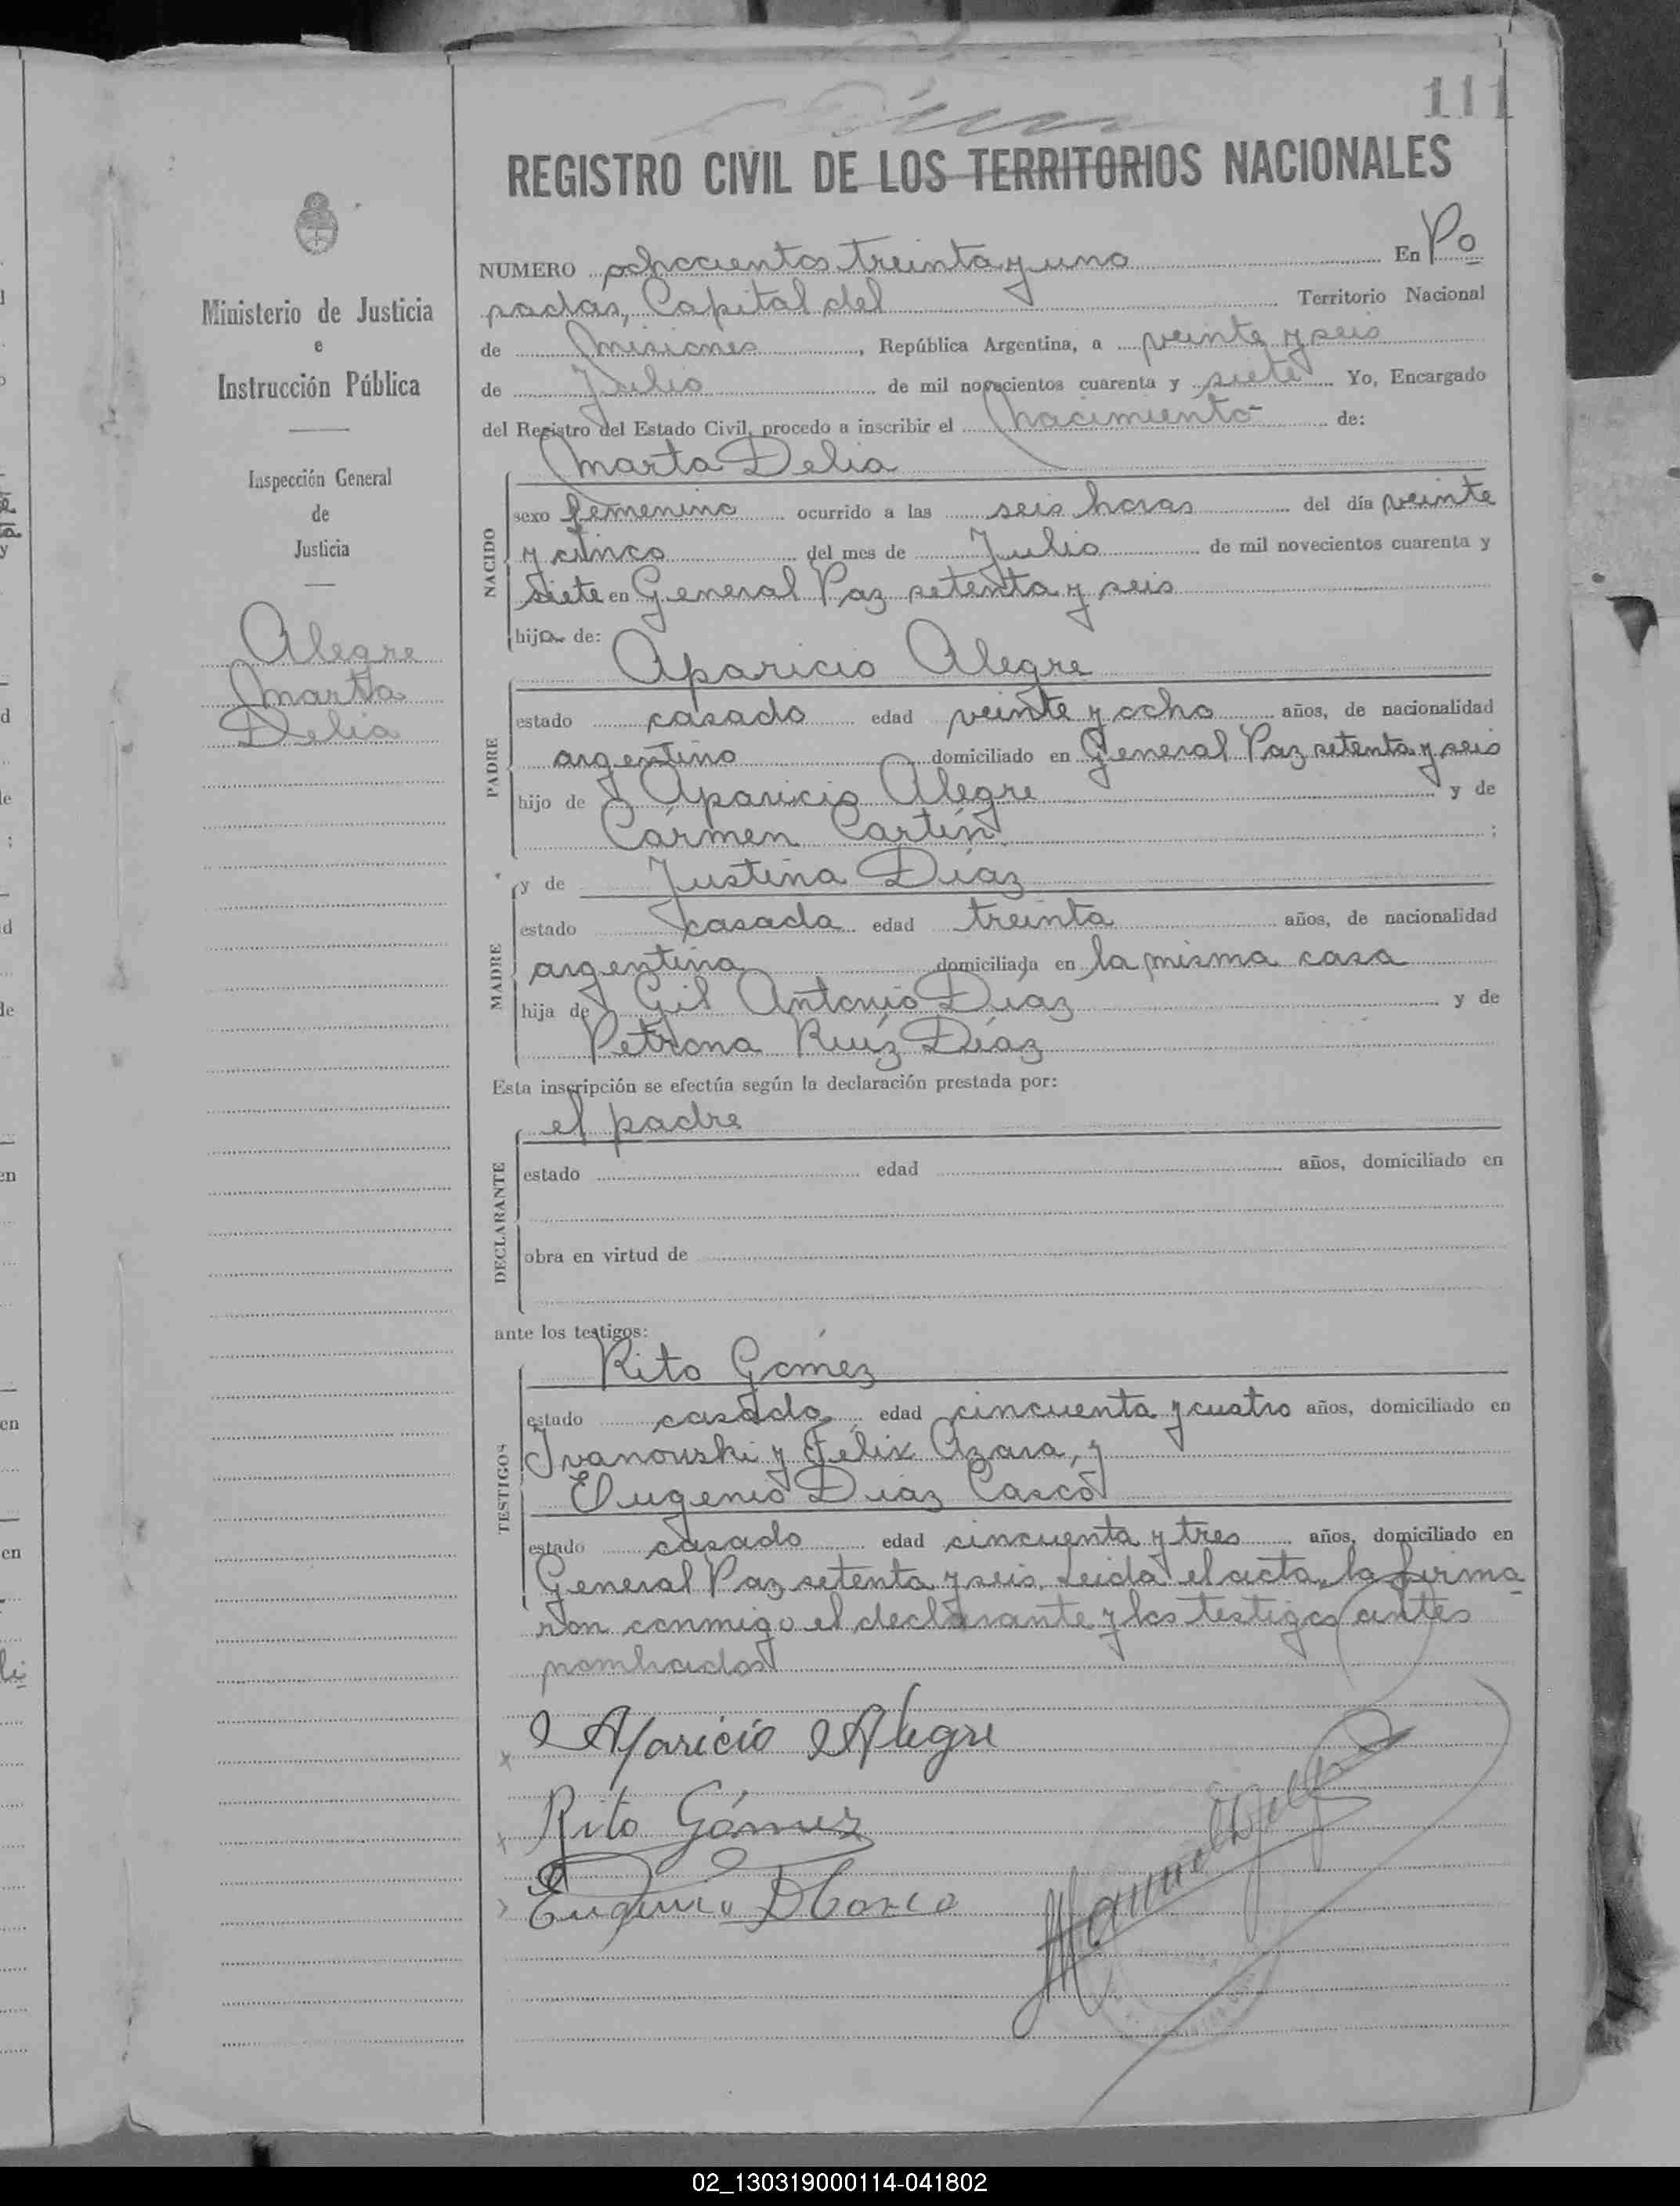 111
REGISTRO CIVIL DE LOS TERRITORIOS NACIONALES
Ministerio de Justicia
e
Instrucción Pública
Inspección General
de
Justicia
Alegre
Martha
Delia
NUMERO ochocientos treinta y uno En Po
sadas, Capital del Territorio Nacional
de Misiones, República Argentina, a veinte y seis
de Julio de mil novecientos cuarenta y siete Yo, Encargado
del Registro del Estado Civil, procedo a inscribir el nacimiento de:
Marta Delia
NACIDO
sexo femenino ocurrido a las seis horas del día veinte
y cinco del mes de Julio de mil novecientos cuarenta y
siete en General Paz setenta y seis
hija de:
Aparicio Alegre
PADRE
estado casado edad veinte y ocho años, de nacionalidad
argentino domiciliado en General Paz setenta y seis
hijo de Aparicio Alegre y de
Cármen Cartín;
y de Justina Díaz
MADRE
estado casada edad treinta años, de nacionalidad
argentina domiciliada en la misma casa
hija de Gil Antonio Díaz y de
Petrona Ruíz Díaz
Esta inscripción se efectúa según la declaración prestada por:
el padre
DECLARANTE
estado edad años, domiciliado en
obra en virtud de
ante los testigos:
Rito Gómez
TESTIGOS
estado casado edad cincuenta y cuatro años, domiciliado en
Ivanouski y Félix Azara, y
Eugenio Diaz Cascó
estado casado edad cincuenta y tres años, domiciliado en
General Paz setenta y seis. Leida el acta, la firma-
ron conmigo el declarante y los testigos antes
nombrados
Aparicio Alegre
Rito Gómez
Eugenio D Casco
02_130319000114-041802